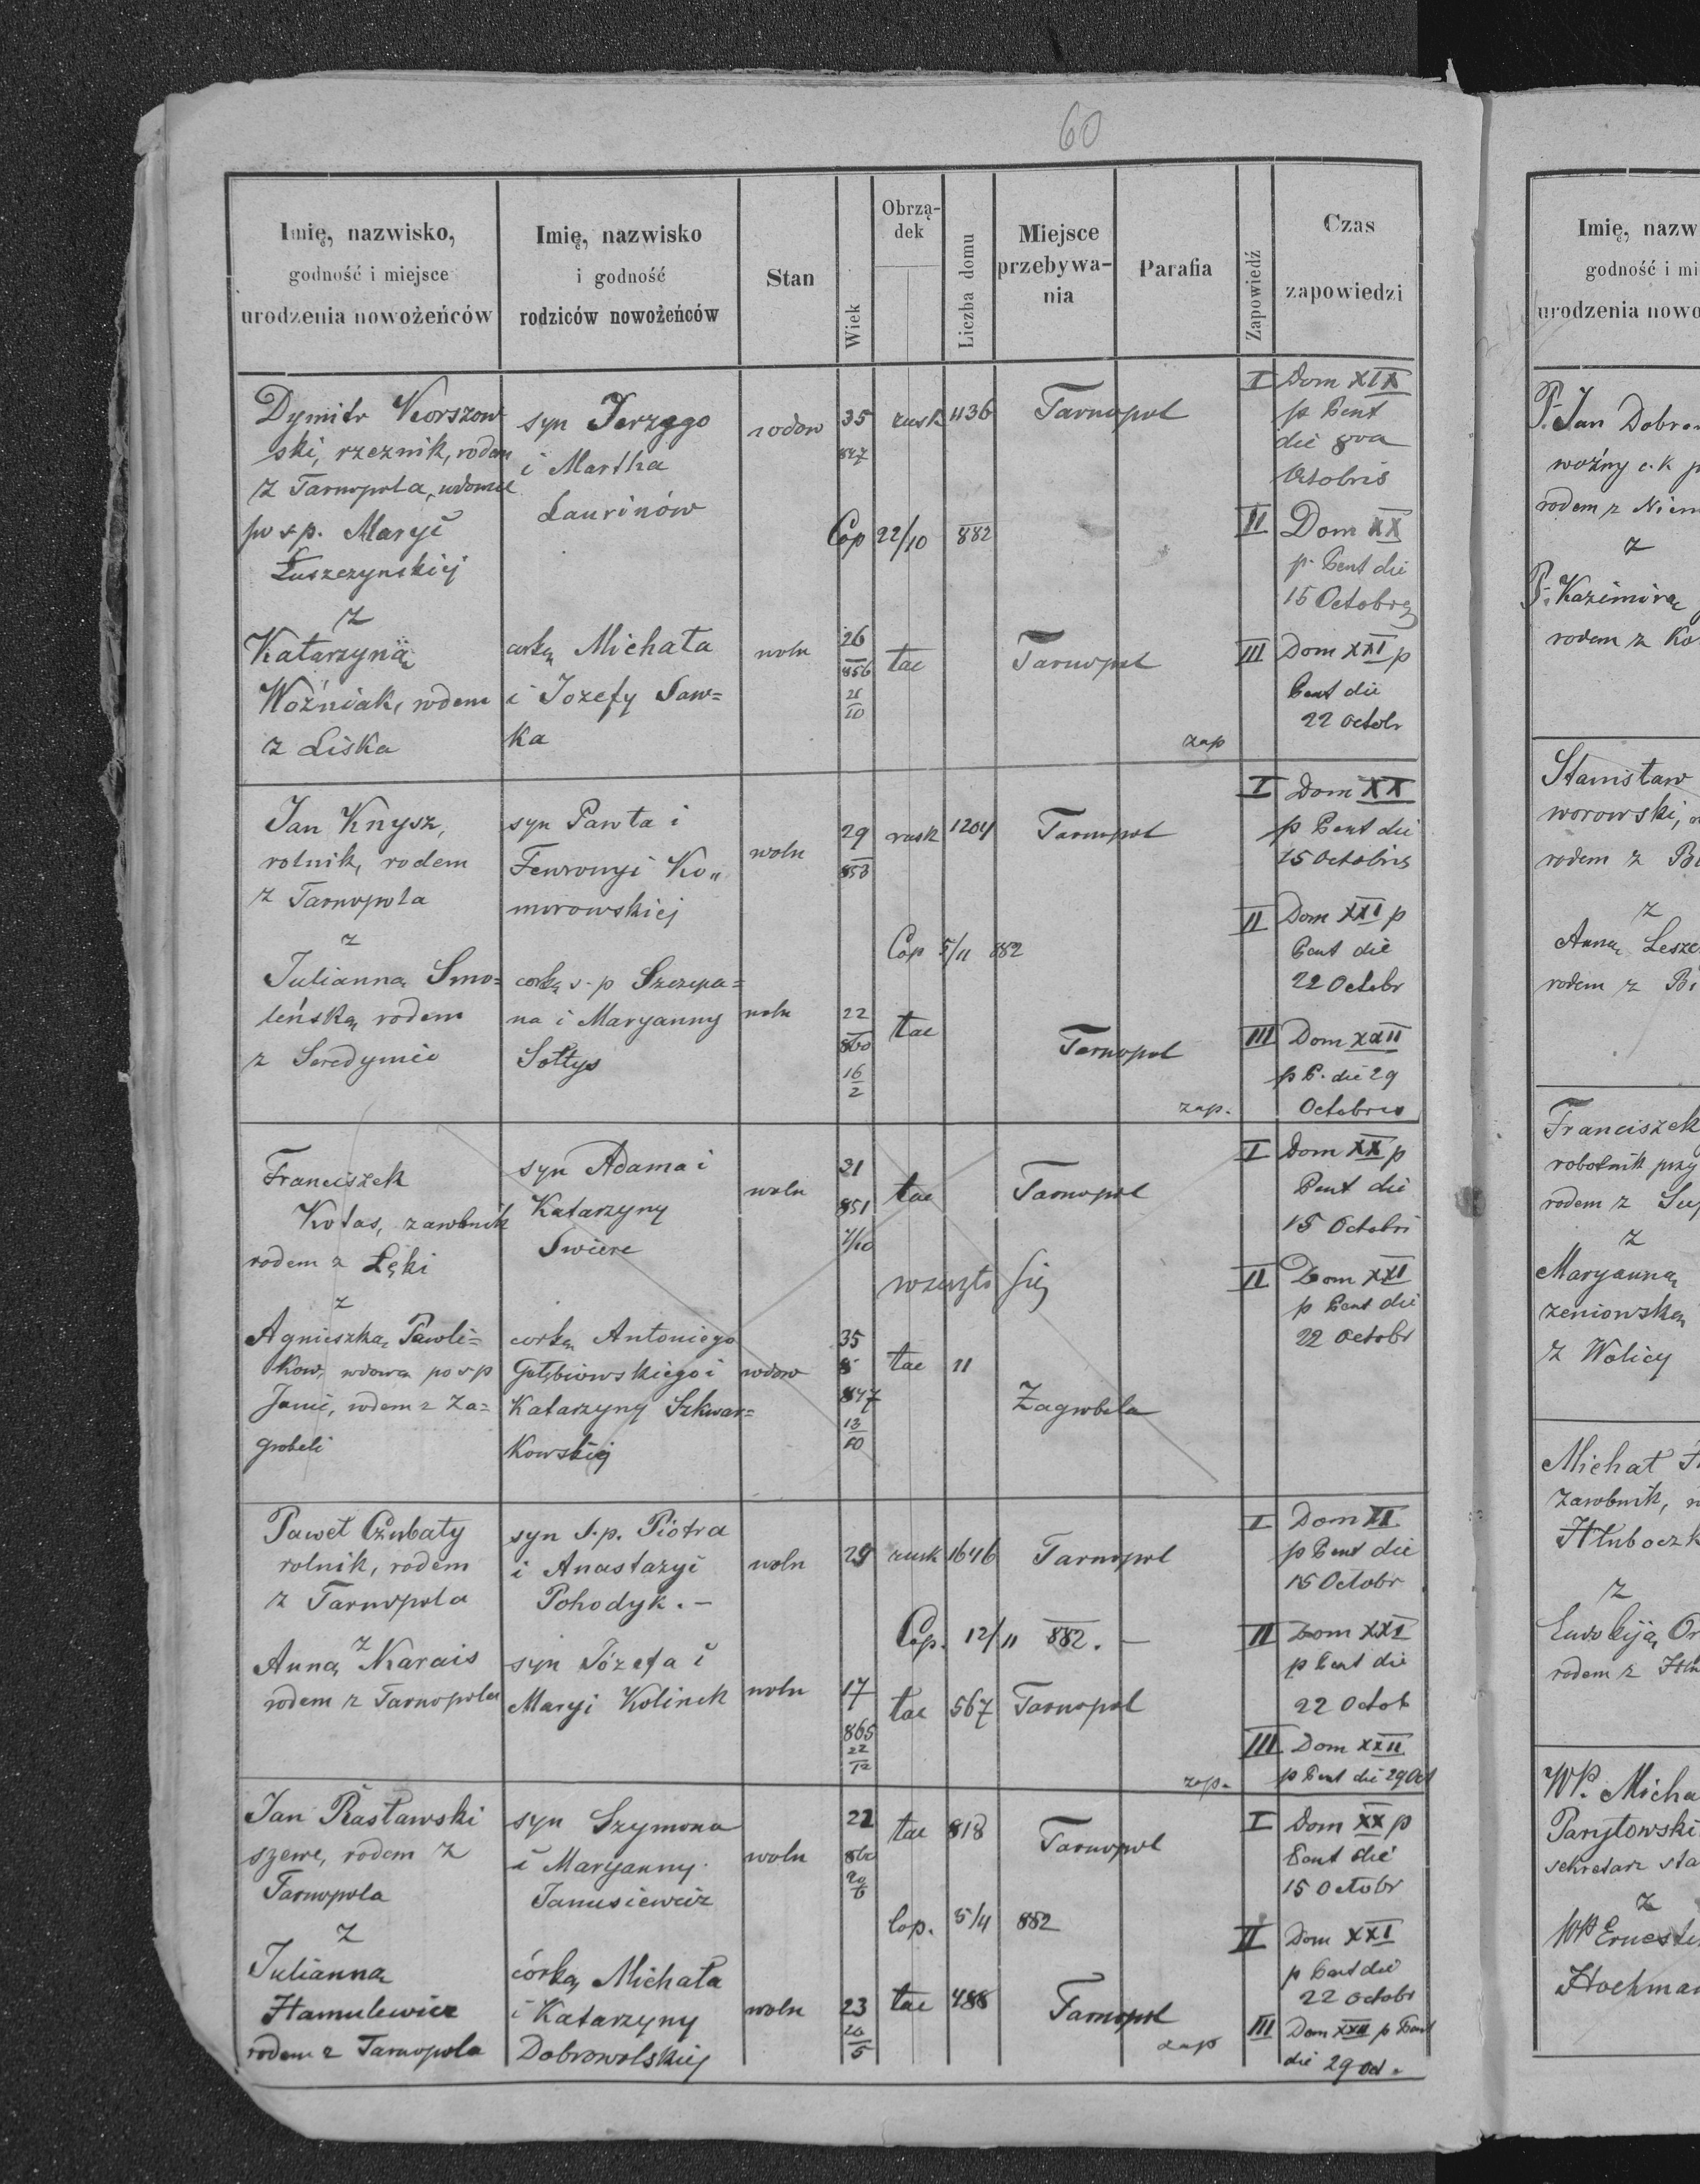 60
Imię, nazwisko,
godność i miejsce
urodzenia nowożeńców
Imię, nazwisko
i godność
rodziców nowożeńców
Stan
Wiek
Obrzą-
dek
Liczba domu
Miejsce
przebywa-
nia
Parafia
Zapowiedź
Czas
zapowiedzi
Dymitr Korszow
ski, rzeznik, rodem
z Tarnopola, wdowiec
po s p. Maryi
Łuszczynskiej
z
Katarzyną
Woźniak, rodem
z Liska
syn Jerzego
i Martha
Laurinów
corką Michała
i Jozefy Saw=
ka
wdow
woln
35
847
rusk
1136
Tarnopol
Cop 22/10 882
26
856
21
10
łac
Tarnopol
zap
I Dom XIX
p Pent
die 8va
Octobris
II Dom XX
p. Pent die
15 Octobris
III Dom XXI p
Pent die
22 Octobr
Jan Knysz,
rolnik, rodem
z Tarnopola
z
Julianną Smo=
leńską rodem
z Seredyniec
syn Pawła i
Fewronyi Ko"
morowskiej
corką s. p Szczepa=
na i Maryanny
Sołtys
woln
woln
29
853
rusk
1204
Tarnopol
Cop 5/11 882
22
860
16
2
łac
Tarnopol
zap.
I Dom XX
p Pent die
15 Octobris
II Dom XXI p
Pent die
22 Octobr
III Dom XXII
p P. die 29
Octobris
Franciszek
Kotas, zarobnik
rodem z Łęki
z
Agnieszką Pawli=
kow, wdowa po s p
Janie, rodem z Za=
grobeli
syn Adama i
Katarzyny
Swierc
corką Antoniego
Gołębiowskiego i
Katarzyny Szkwar=
kowskiej
woln
wdow
21
851
łac
Tarnopol
35
847
13
10
łac
11
Zagrobela
I Dom XX p
Pent die
15 Octobri
II Dom XXI
p Pent die
22 Octobr
Paweł Czubaty
rolnik, rodem
z Tarnopola
z
Anną Karais
rodem z Tarnopola
syn S. p. Piotra
i Anastazyi
Pohodyk. –
syn Józefa i
Maryi Kolinek
woln
woln
29
rusk
1646
Tarnopol
Cop. 12/11 882. –
17
865
22
12
łac
567
Tarnopol
zap.
I Dom XX
p Pent die
15 Octobr
II Dom XXI
p Pent die
22 Octob
III Dom XXII
p Pent die 29 Oct
Jan Rasławski
szewc, rodem z
Tarnopola
z
Julianną
Hamulewicz
rodem z Tarnopola
syn Szymona
i Maryanny
Janusiewicz
córką Michała
i Katarzyny
Dobrowolskiej
woln
woln
22
20
6
łac
818
Tarnopol
Cop. 5/11 882
23
20
5
łac
488
Tarnopol
zap
I Dom XX p
Pent die
15 Octobr
II Dom XXI
p Pent die
22 Octobr
III Dom XXII p Pent
die 29 Oct.
Imię, nazw
godność i mi
urodzenia nowo
P. Jan Dobro
woźny c. k p
rodem z Niem
z
P. Kazimirą
rodem z Ko
Stanisław
worowski,
rodem z Bi
z
Anną Leszc
rodem z Bi
Franciszek
robotnik przy
rodem z Sup
z
Maryanną
zeniowską
z Wolicy
Michał
zarobnik,
Hłuboczk
z
Ewdokiją
rodem z Hłu
WP. Micha
Parytowski
sekretarz sta
z
WP Ernesti
Hochman